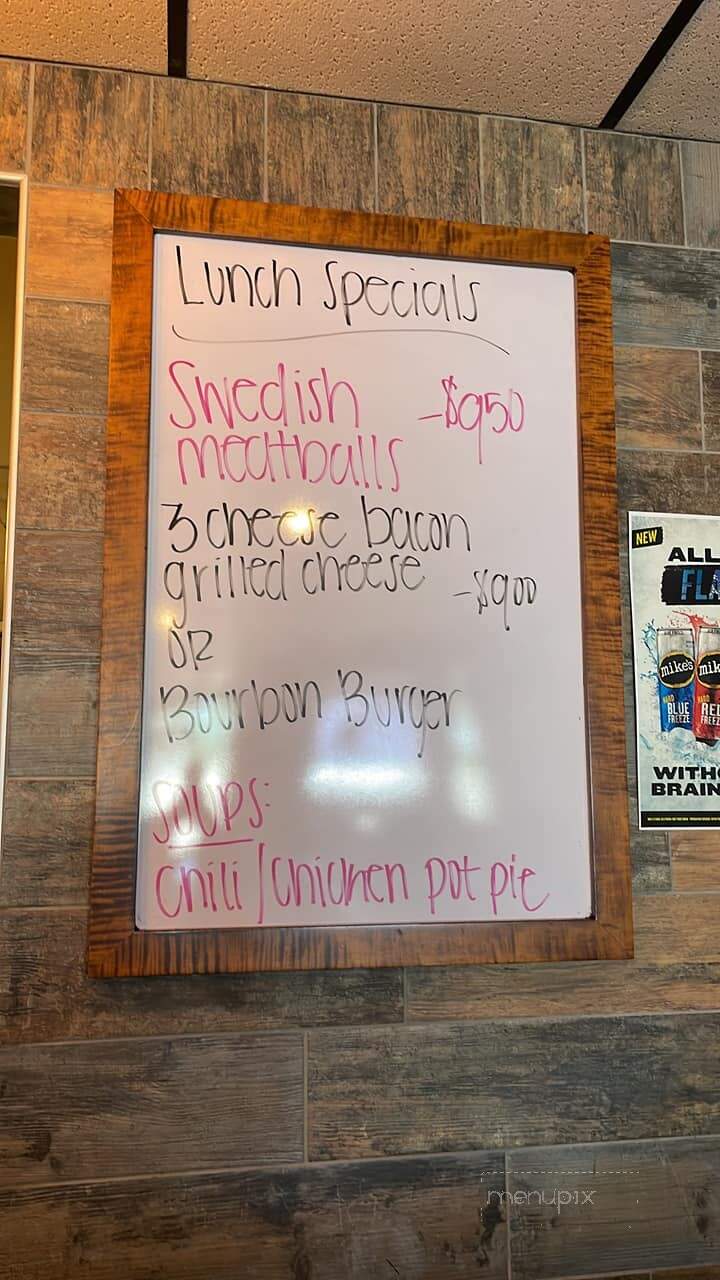 Lunch Specials
Swedish -$950
meatballs
3 cheese bacon
grilled cheese -$900
OR
Bourbon Burger
Soups:
Chili / Chicken pot pie
NEW
ALL
FLA
mike's mik
HARD HARD
BLUE RED
FREEZE FREEZ
WITH
BRAIN
menupix